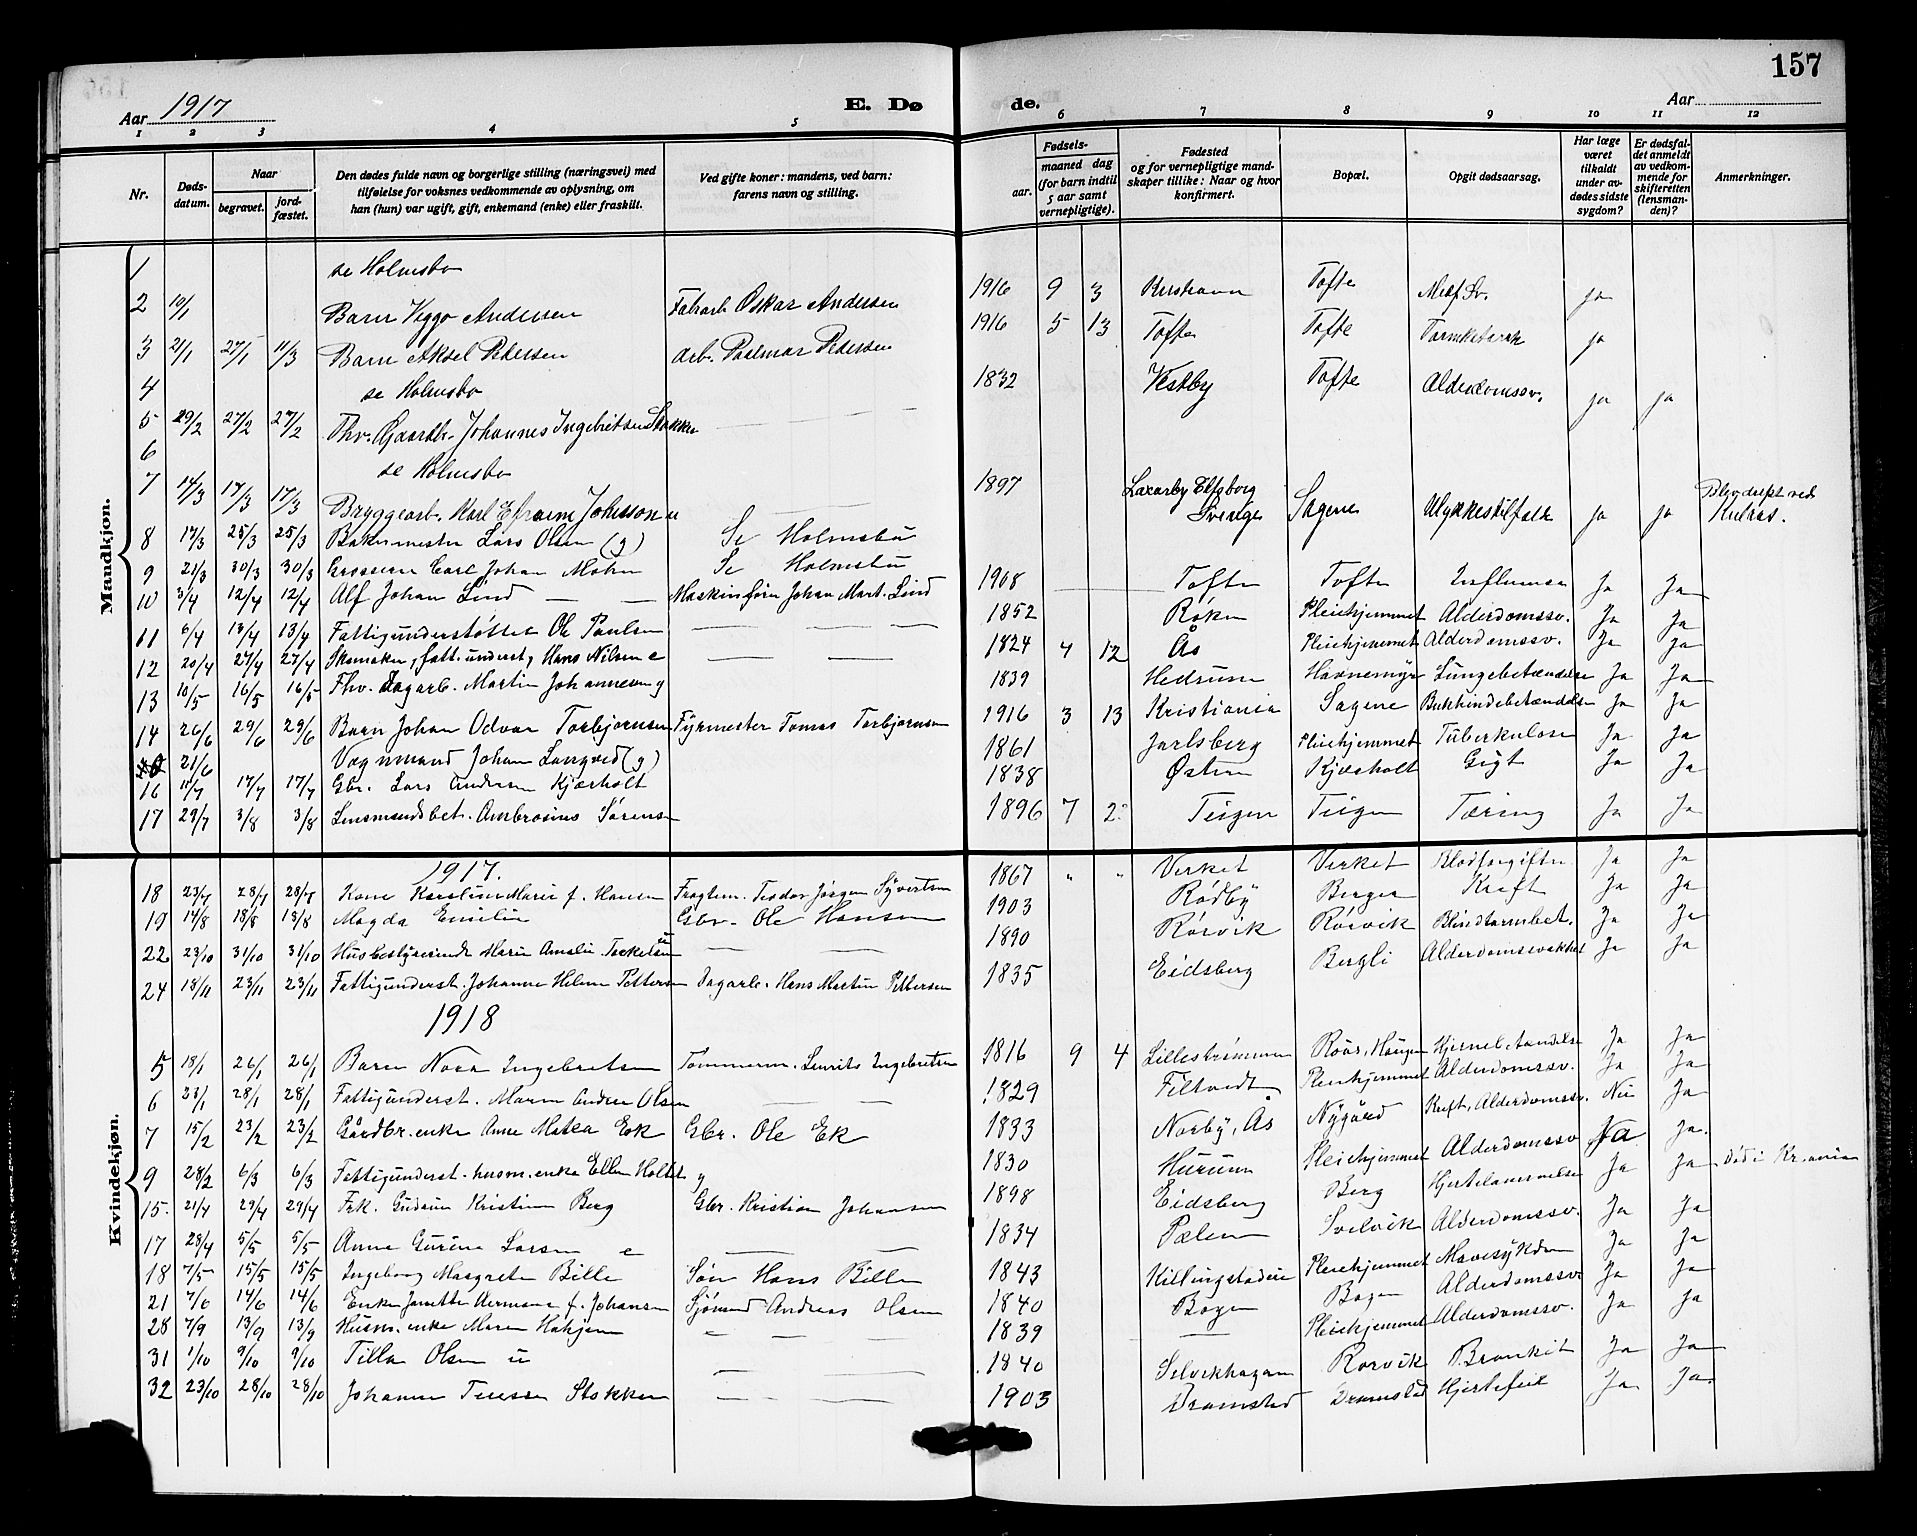 157
Aar 1917
E. Dø
de.
Aar
1 2 3 4 5 6 7 8 9 10 11 12
Nr.
Døds-
datum.
Naar
begravet.
jord-
fæstet.
Den dødes fulde navn og borgerlige stilling (næringsvei) med
tilføielse for voksnes vedkommende av oplysning, om
han (hun) var ugift, gift, enkemand (enke) eller fraskilt.
Ved gifte koner: mandens, ved barn:
farens navn og stilling.
Fødsels-
aar.
maaned dag
(for barn indtil
5 aar samt
vernepligtige).
Fødested
og for vernepligtige mand-
skaper tillike: Naar og hvor
konfirmert.
Bopæl.
Opgit dødsaarsag.
Har læge
været
tilkaldt
under av-
dødes sidste
sygdom?
Er dødsfal-
det anmeldt
av vedkom-
mende for
skifteretten
(lensman-
den)?
Anmerkninger.
Mandkjøn.
1 se Holmsbo
2 10/1 Barn Viggo Andersen Fabarb Oskar Andersen 1916 9 3 Tofte Medf. Sv. ja
3 21/1 27/1 11/3 Barn Aksel Pedersen arb. Pedersen 1916 5 13 Tofte Tofte ja
4 se Holmsbo
5 27/2 27/2 Johannes Ingebritsen Stokker 1832 Vestby Tofte Alderdomssv. ja ja
6 se Holmsbo
7 14/3 17/3 17/3 Bryggearb. Karl Johnsson u 1897 Elfsborg
Sverige Sagene Ulykkestilfælde ja ja Blev dræpt ved
8 17/3 25/3 25/3 Bakermester Lars Olsen (g) Se Holmsbu
9 21/3 30/3 30/3 Grosserer Carl Johan Mohn Se Holmsbu
10 3/4 12/4 12/4 Alf Johan Lind Maskinfører Johan Mart. Lind 1908 Tofte Tofte Influensa Ja Ja
11 6/4 13/4 13/4 Fattigunderstøttet Ole Paulsen 1852 Røken Pleiehjemmet Alderdomssv. Ja Ja
12 20/4 27/4 27/4 Skomaker, fatt. underst, Hans Nilsen e 1824 4 12 Ås Pleiehjemmet Alderdomssv. Ja Ja
13 10/5 16/5 16/5 Fhv. Dagarb. Martin Johannesen g 1839 Hedrum Havnemyr Lungebetændelse Ja Ja
14 26/6 29/6 29/6 Barn Johan Odvar Torbjørnsen Fyrmester Tomas Torbjørnsen 1916 3 13 Kristiania Sagene Bukhindebetændelse Ja Ja
21/6 Vognmand Johan Langved (g) 1861 Jarlsberg Pleiehjemmet Tuberkulose Ja Ja
16 11/7 17/7 17/7 Gbr. Lars Andersen Kjærholt 1838 Kjærholt Gigt Ja Ja
17 29/7 3/8 3/8 Lensmandsbet. Ambrosius Sørensen 1896 7 Teigen Teigen Tæring Ja Ja
Kvindekjøn.
1917.
18 23/7 28/7 28/7 Kone Karoline Marie f. Hansen Fragtem. Teodor Jørgen Syvertsen 1867 " " Verket Verket Blodforgiftn. Ja Ja
19 14/8 18/8 18/8 Magda Emilie Gbr. Ole Hansen 1903 Rødby Berger Kreft Ja Ja
22 23/10 31/10 31/10 Husbestyrerinde Marie Amalie Torkelsen 1890 Rørvik Rørvik Blindtarmbet. Ja Ja
24 18/11 23/11 23/11 Fattigunderst. Johanne Helene Pettersen Dagarb. Hans Martin Pettersen 1835 Eidsberg Bergli Alderdomssvakhet Ja Ja
1918
5 18/1 26/1 26/1 Barn Nora Ingebretsen Tømmerm. Lauritz Ingebretsen 1816 9 4 Lillestrømmen Røås, Haugen Ja Ja
6 23/1 28/1 28/1 Fattigunderst. Maren Andrea Olsen 1829 Filtvedt Pleiehjemmet Alderdomssv. Ja Ja
7 15/2 23/2 23/2 Gårdbr. enke Anne Matea Ek Gbr. Ole Ek 1833 Norby, Ås Nygård Kreft, Alderdomssv. Nei Ja
9 28/2 6/3 6/3 Fattigunderst. husm. enke Ellen Holtet 1830 Hurum Pleiehjemmet Alderdomssv Ja Ja.
15. 21/4 29/4 29/4 Frk. Gudrun Kristine Berg Gbr. Kristian Johansen 1898 Eidsberg Berg Hjertelammelse Ja Ja Død i Kr.ania
17 28/4 5/5 5/5 Anne Gurine Larsen e 1834 Svelvik Alderdomssv. Ja Ja
18 7/5 15/5 15/5 Ingeborg Margrete Bille Søn Hans Bille 1843 Killingstadeie Pleiehjemmet Mavesykdom Ja Ja
21 7/6 14/6 14/6 Enke Janette Hermane f. Johansen Sjømand Andreas Olsen 1840 Bogen Bogen Alderdomssv Ja Ja
28 7/9 13/9 13/9 Husm. enke Maren 1839 Pleiehjemmet Alderdomssv. Ja Ja
31 1/10 9/10 9/10 Tilla Olsen u 1840 Selvikhagan Rørvik Bronkit Ja Ja
32 23/10 28/10 28/10 Johanne Terese Stokker 1903 Dramstad Dramstad Hjertefeil Ja Ja.